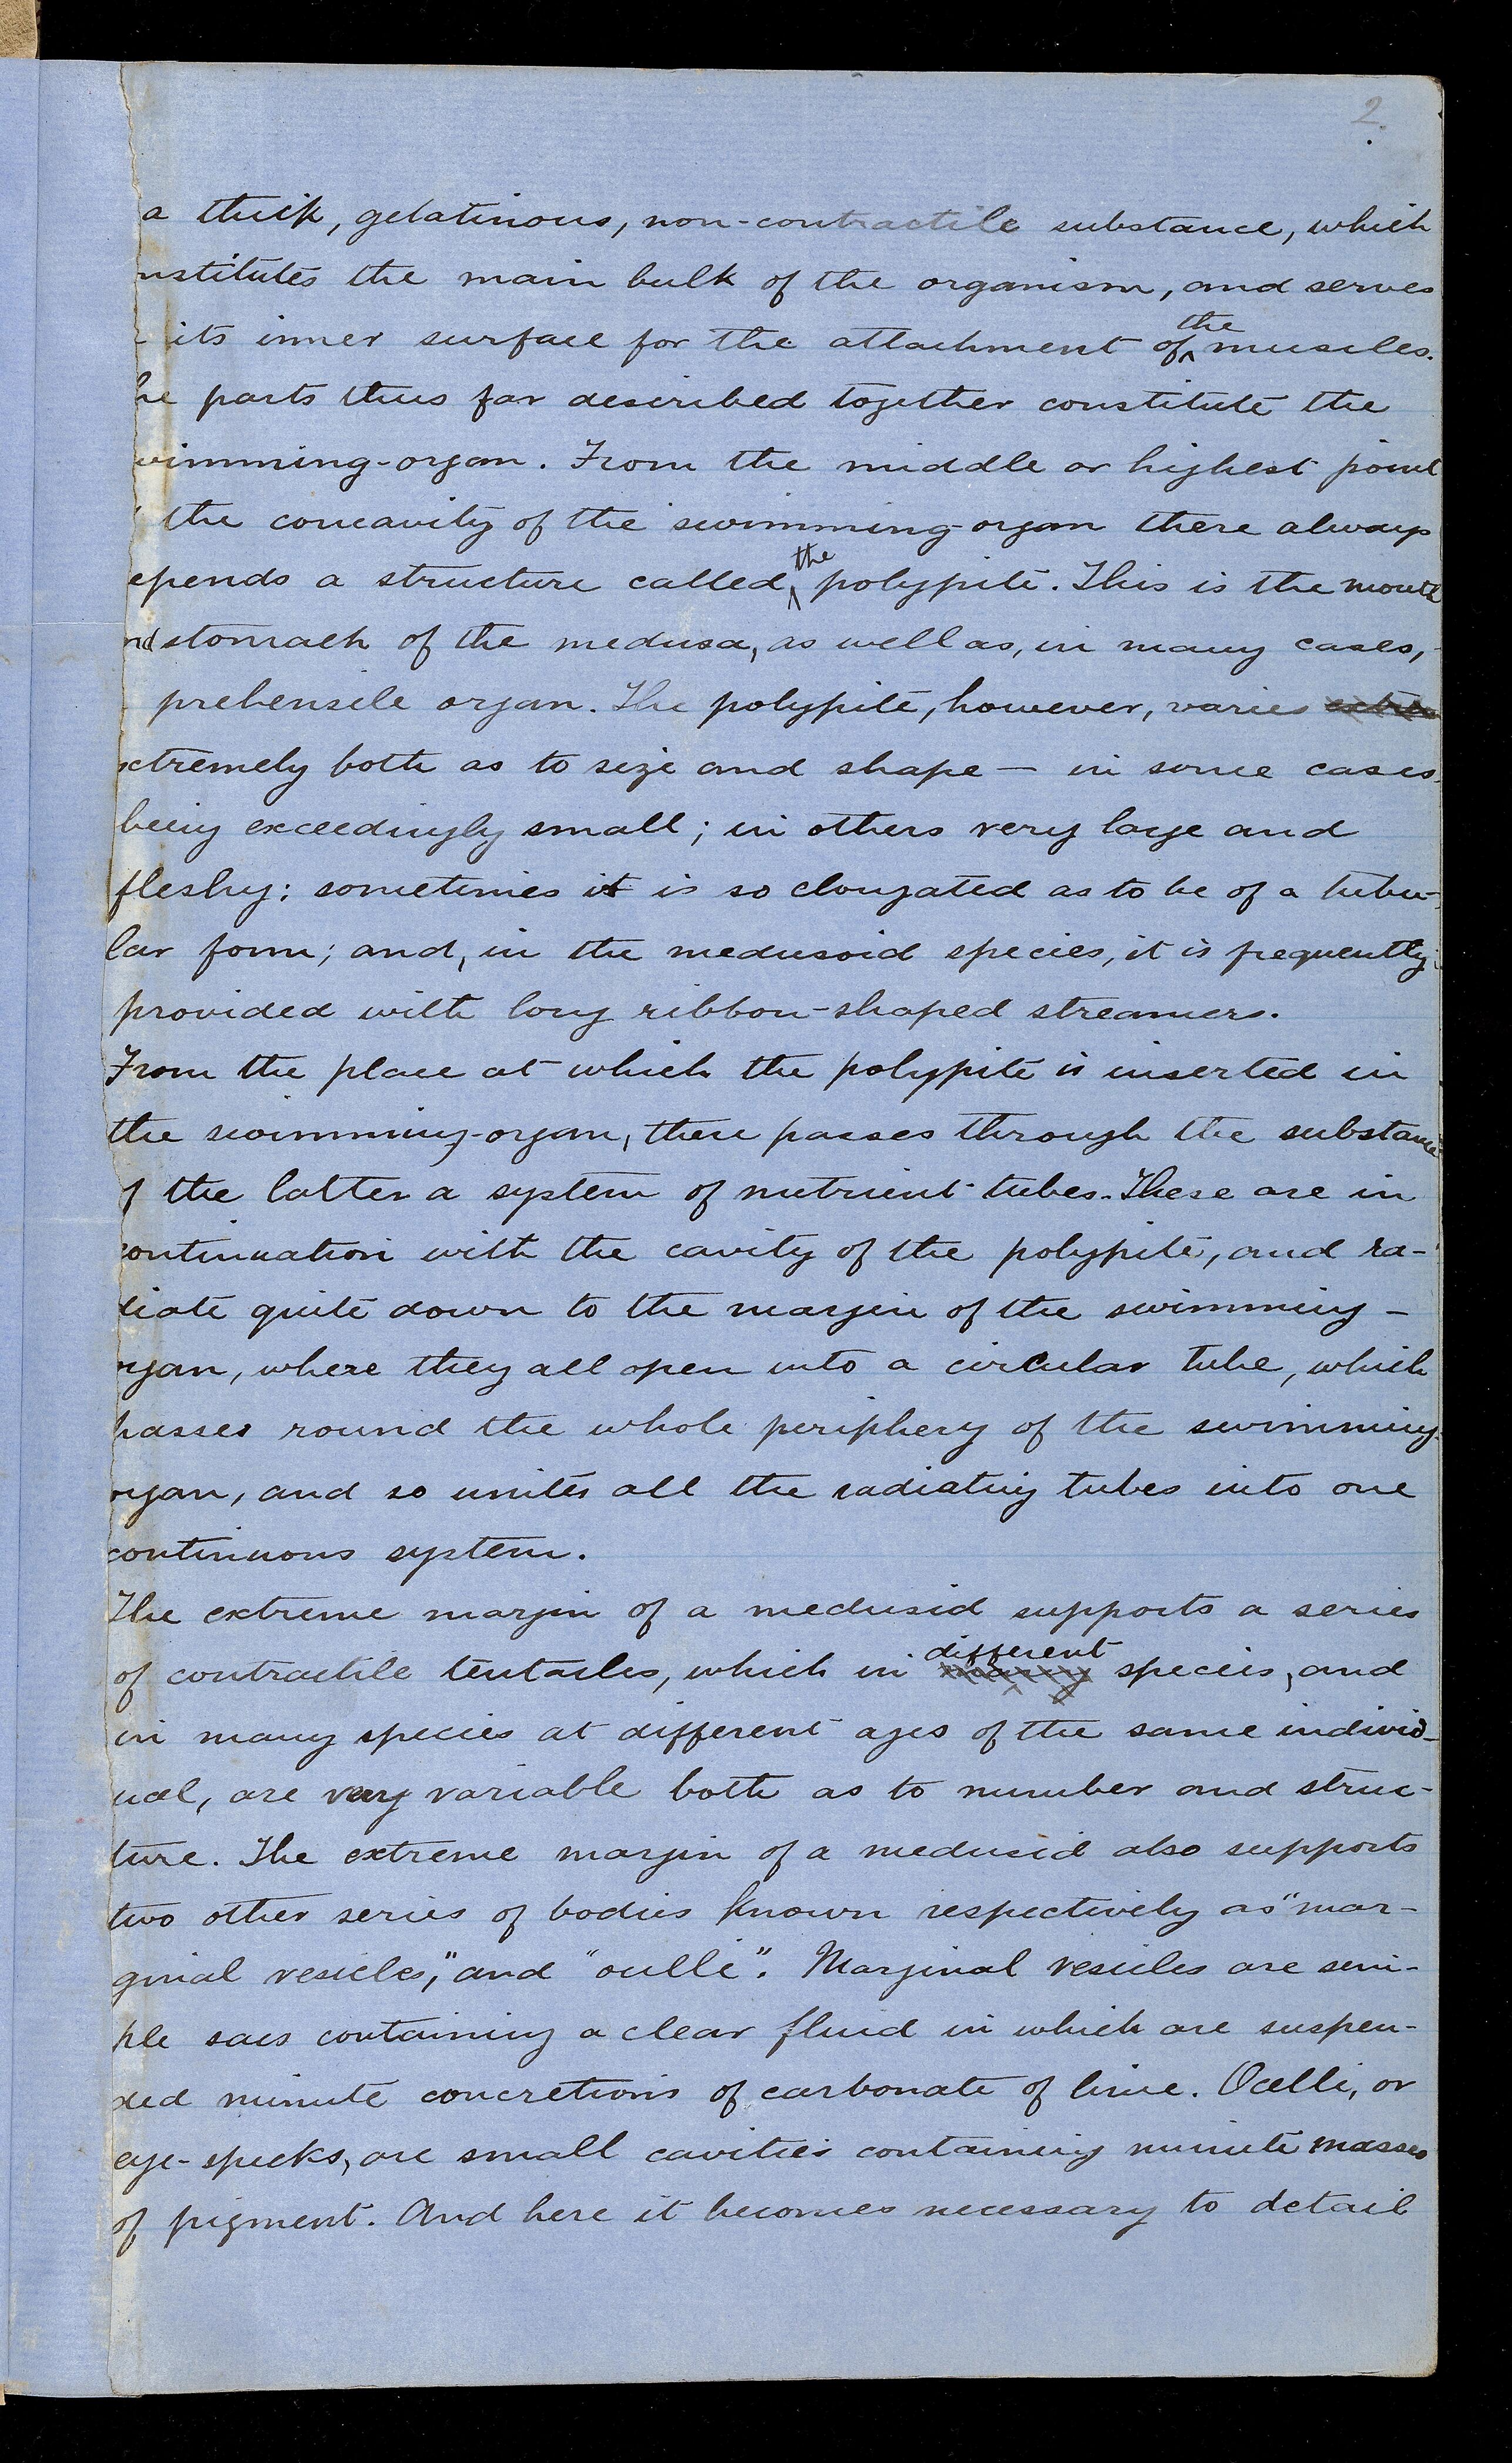 2.
a thick, gelatinous, non-contractile substance, which
nstitutes the main bulk of the organism, and serves
its inner surface for the attachment of the muscles.
he parts thus far described together constitute the
wimming-organ. From the middle or highest point
the concavity of the swimming-organ there always
epends a structure called the polypite. This is the mouth
nd stomach of the medusa, as well as, in many cases,
prehensile organ. The polypite, however, varies extre
xtremely both as to size and shape — in some cases
being exceedingly small; in others very large and
fleshy: sometimes it is so elongated as to be of a tubu-
lar form; and, in the medusoid species, it is frequently
provided with long ribbon-shaped streamers.
From the place at which the polypite is inserted in
the swimming-organ, there passes through the substance
f the latter a system of nutrient tubes. These are in
continuation with the cavity of the polypite, and ra-
diate quite down to the margin of the swimming-
rgan, where they all open into a circular tube, which
passes round the whole periphery of the swimming-
organ, and so unites all the radiating tubes into one
continuous system.
The extreme margin of a medusid supports a series
of contractile tentacles, which in many different species, and
in many species at different ages of the same individ-
ual, are very variable both as to number and struc-
ture. The extreme margin of a medusid also supports
two other series of bodies known respectively as "mar-
ginal vesicles," and "ocelli". Marginal vesicles are sim-
ple sacs containing a clear fluid in which are suspen-
ded minute concretions of carbonate of lime. Ocelli, or
eye-specks, are small cavities containing minute masses
of pigment. And here it becomes necessary to detail